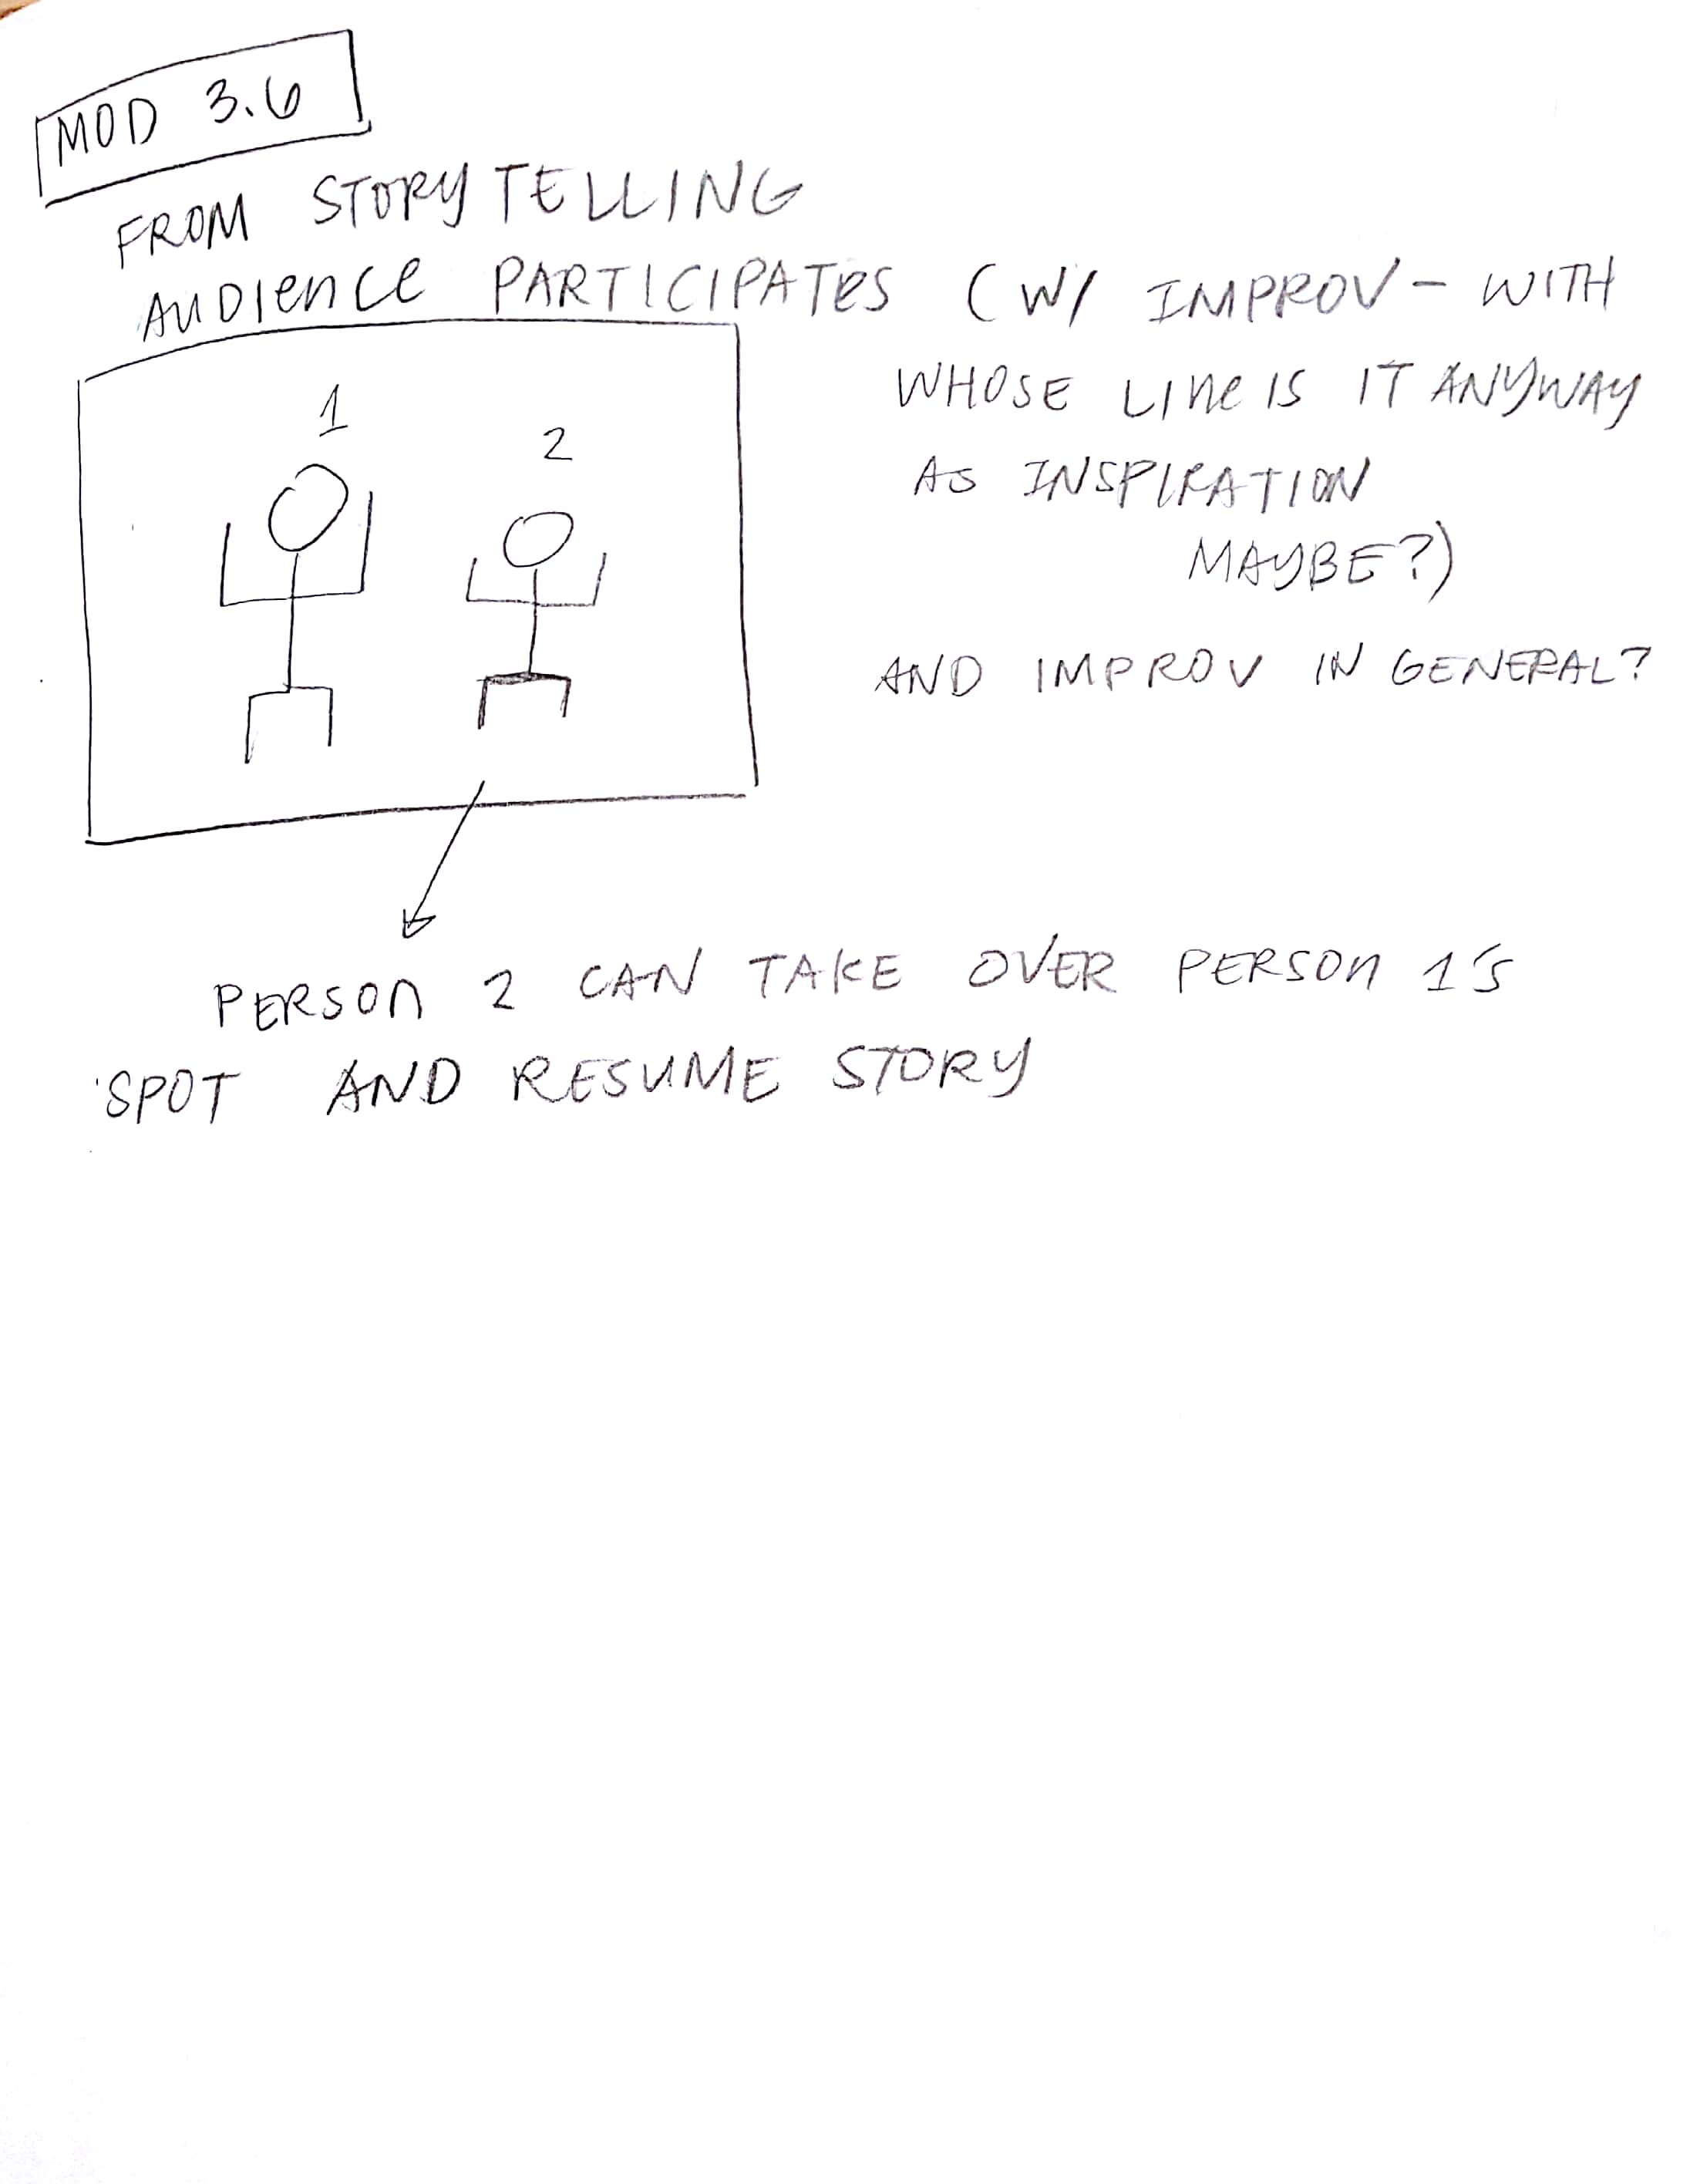 MOD 3.6
FROM STORYTELLING
AUDIENCE PARTICIPATES (W/ IMPROV - WITH
WHOSE LINE IS IT ANYWAY
AS INSPIRATION
MAYBE?)
AND IMPROV IN GENERAL?
1
2
PERSON 2 CAN TAKE OVER PERSON 1'S
SPOT AND RESUME STORY